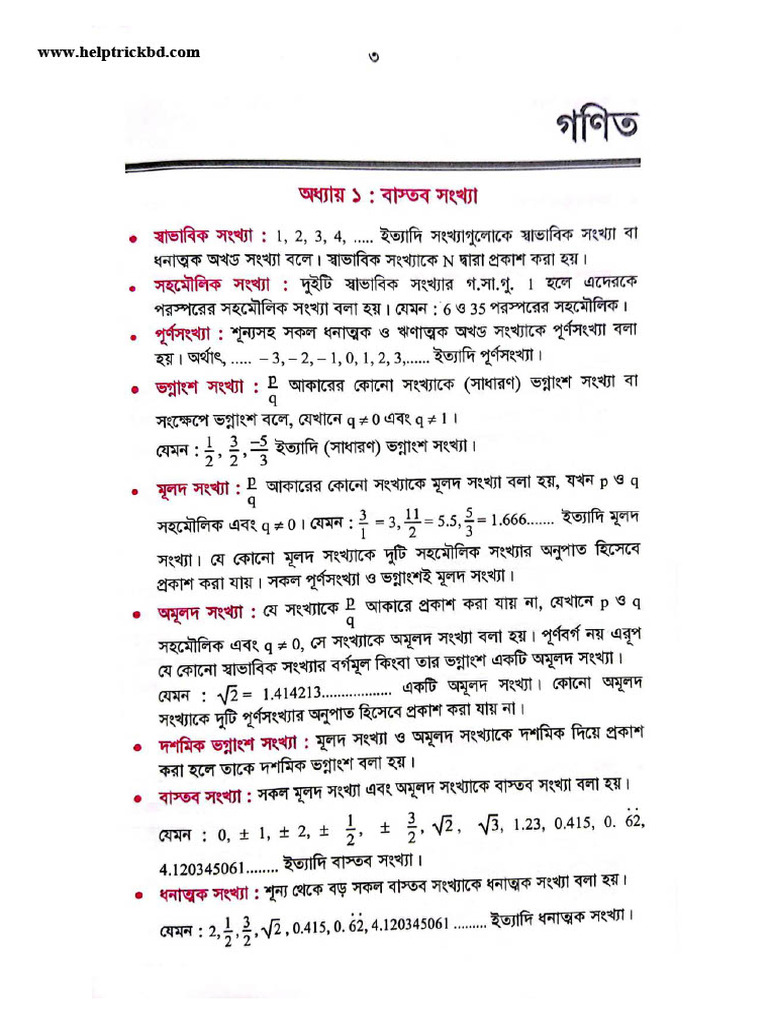 www.helptrickbd.com
৩
গণিত
অধ্যায় ১ : বাস্তব সংখ্যা
• স্বাভাবিক সংখ্যা : 1, 2, 3, 4, ..... ইত্যাদি সংখ্যাগুলোকে স্বাভাবিক সংখ্যা বা
ধনাত্মক অখণ্ড সংখ্যা বলে। স্বাভাবিক সংখ্যাকে N দ্বারা প্রকাশ করা হয়।
• সহমৌলিক সংখ্যা : দুইটি স্বাভাবিক সংখ্যার গ.সা.গু. 1 হলে এদেরকে
পরস্পরের সহমৌলিক সংখ্যা বলা হয়। যেমন : 6 ও 35 পরস্পরের সহমৌলিক।
• পূর্ণসংখ্যা : শূন্যসহ সকল ধনাত্মক ও ঋণাত্মক অখণ্ড সংখ্যাকে পূর্ণসংখ্যা বলা
হয়। অর্থাৎ, ..... – 3, – 2, – 1, 0, 1, 2, 3,...... ইত্যাদি পূর্ণসংখ্যা।
• ভগ্নাংশ সংখ্যা : p/q আকারের কোনো সংখ্যাকে (সাধারণ) ভগ্নাংশ সংখ্যা বা
সংক্ষেপে ভগ্নাংশ বলে, যেখানে q ≠ 0 এবং q ≠ 1।
যেমন : 1/2, 3/2, –5/3 ইত্যাদি (সাধারণ) ভগ্নাংশ সংখ্যা।
• মূলদ সংখ্যা : p/q আকারের কোনো সংখ্যাকে মূলদ সংখ্যা বলা হয়, যখন p ও q
সহমৌলিক এবং q ≠ 0। যেমন : 3/1 = 3, 11/2 = 5.5, 5/3 = 1.666....... ইত্যাদি মূলদ
সংখ্যা। যে কোনো মূলদ সংখ্যাকে দুটি সহমৌলিক সংখ্যার অনুপাত হিসেবে
প্রকাশ করা যায়। সকল পূর্ণসংখ্যা ও ভগ্নাংশই মূলদ সংখ্যা।
• অমূলদ সংখ্যা : যে সংখ্যাকে p/q আকারে প্রকাশ করা যায় না, যেখানে p ও q
সহমৌলিক এবং q ≠ 0, সে সংখ্যাকে অমূলদ সংখ্যা বলা হয়। পূর্ণবর্গ নয় এরূপ
যে কোনো স্বাভাবিক সংখ্যার বর্গমূল কিংবা তার ভগ্নাংশ একটি অমূলদ সংখ্যা।
যেমন : √2 = 1.414213.................. একটি অমূলদ সংখ্যা। কোনো অমূলদ
সংখ্যাকে দুটি পূর্ণসংখ্যার অনুপাত হিসেবে প্রকাশ করা যায় না।
• দশমিক ভগ্নাংশ সংখ্যা : মূলদ সংখ্যা ও অমূলদ সংখ্যাকে দশমিক দিয়ে প্রকাশ
করা হলে তাকে দশমিক ভগ্নাংশ বলা হয়।
• বাস্তব সংখ্যা : সকল মূলদ সংখ্যা এবং অমূলদ সংখ্যাকে বাস্তব সংখ্যা বলা হয়।
যেমন : 0, ± 1, ± 2, ± 1/2, ± 3/2, √2, √3, 1.23, 0.415, 0. 6̇2̇,
4.120345061........ ইত্যাদি বাস্তব সংখ্যা।
• ধনাত্মক সংখ্যা : শূন্য থেকে বড় সকল বাস্তব সংখ্যাকে ধনাত্মক সংখ্যা বলা হয়।
যেমন : 2, 1/2, 3/2, √2, 0.415, 0. 6̇2̇, 4.120345061 ......... ইত্যাদি ধনাত্মক সংখ্যা।